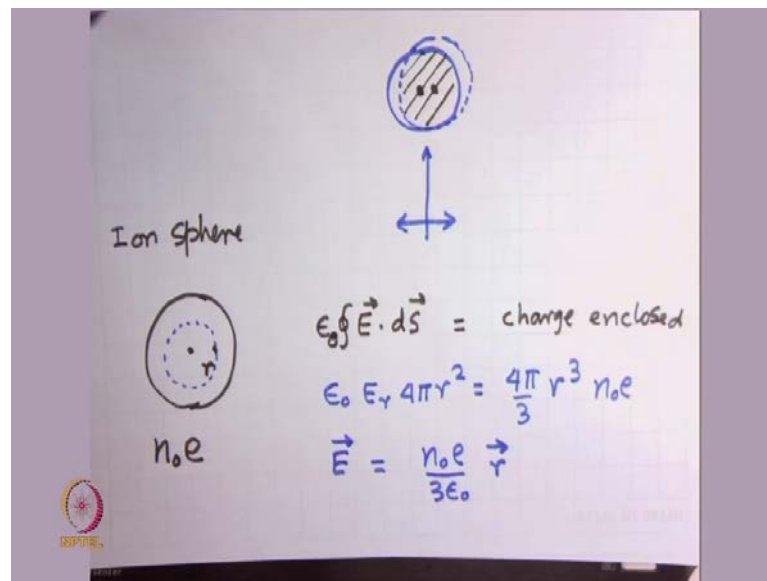 Ion sphere
r
n₀e
ϵ₀∮E⃗·dS⃗ = charge enclosed
ϵ₀ Eᵣ 4πr² = 4π/3 r³ n₀e
E⃗ = n₀e/3ϵ₀ r⃗
NPTEL